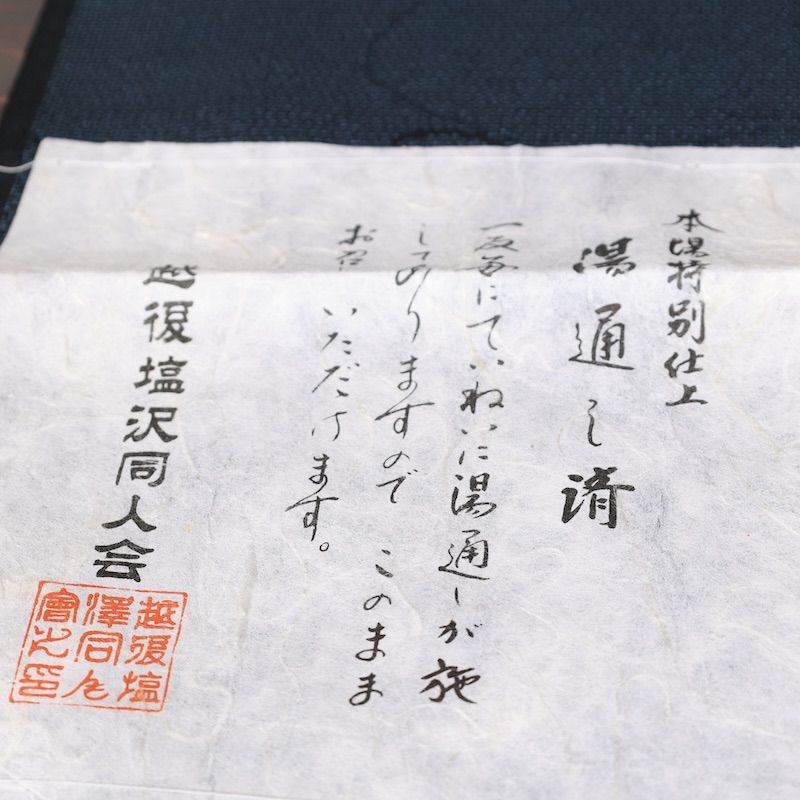 本場特別仕上
湯通し済
一反毎にていねいに湯通しが施
してありますので このまま
お召 いただけます。
越後塩沢同人会
越後塩
澤同人
會之印